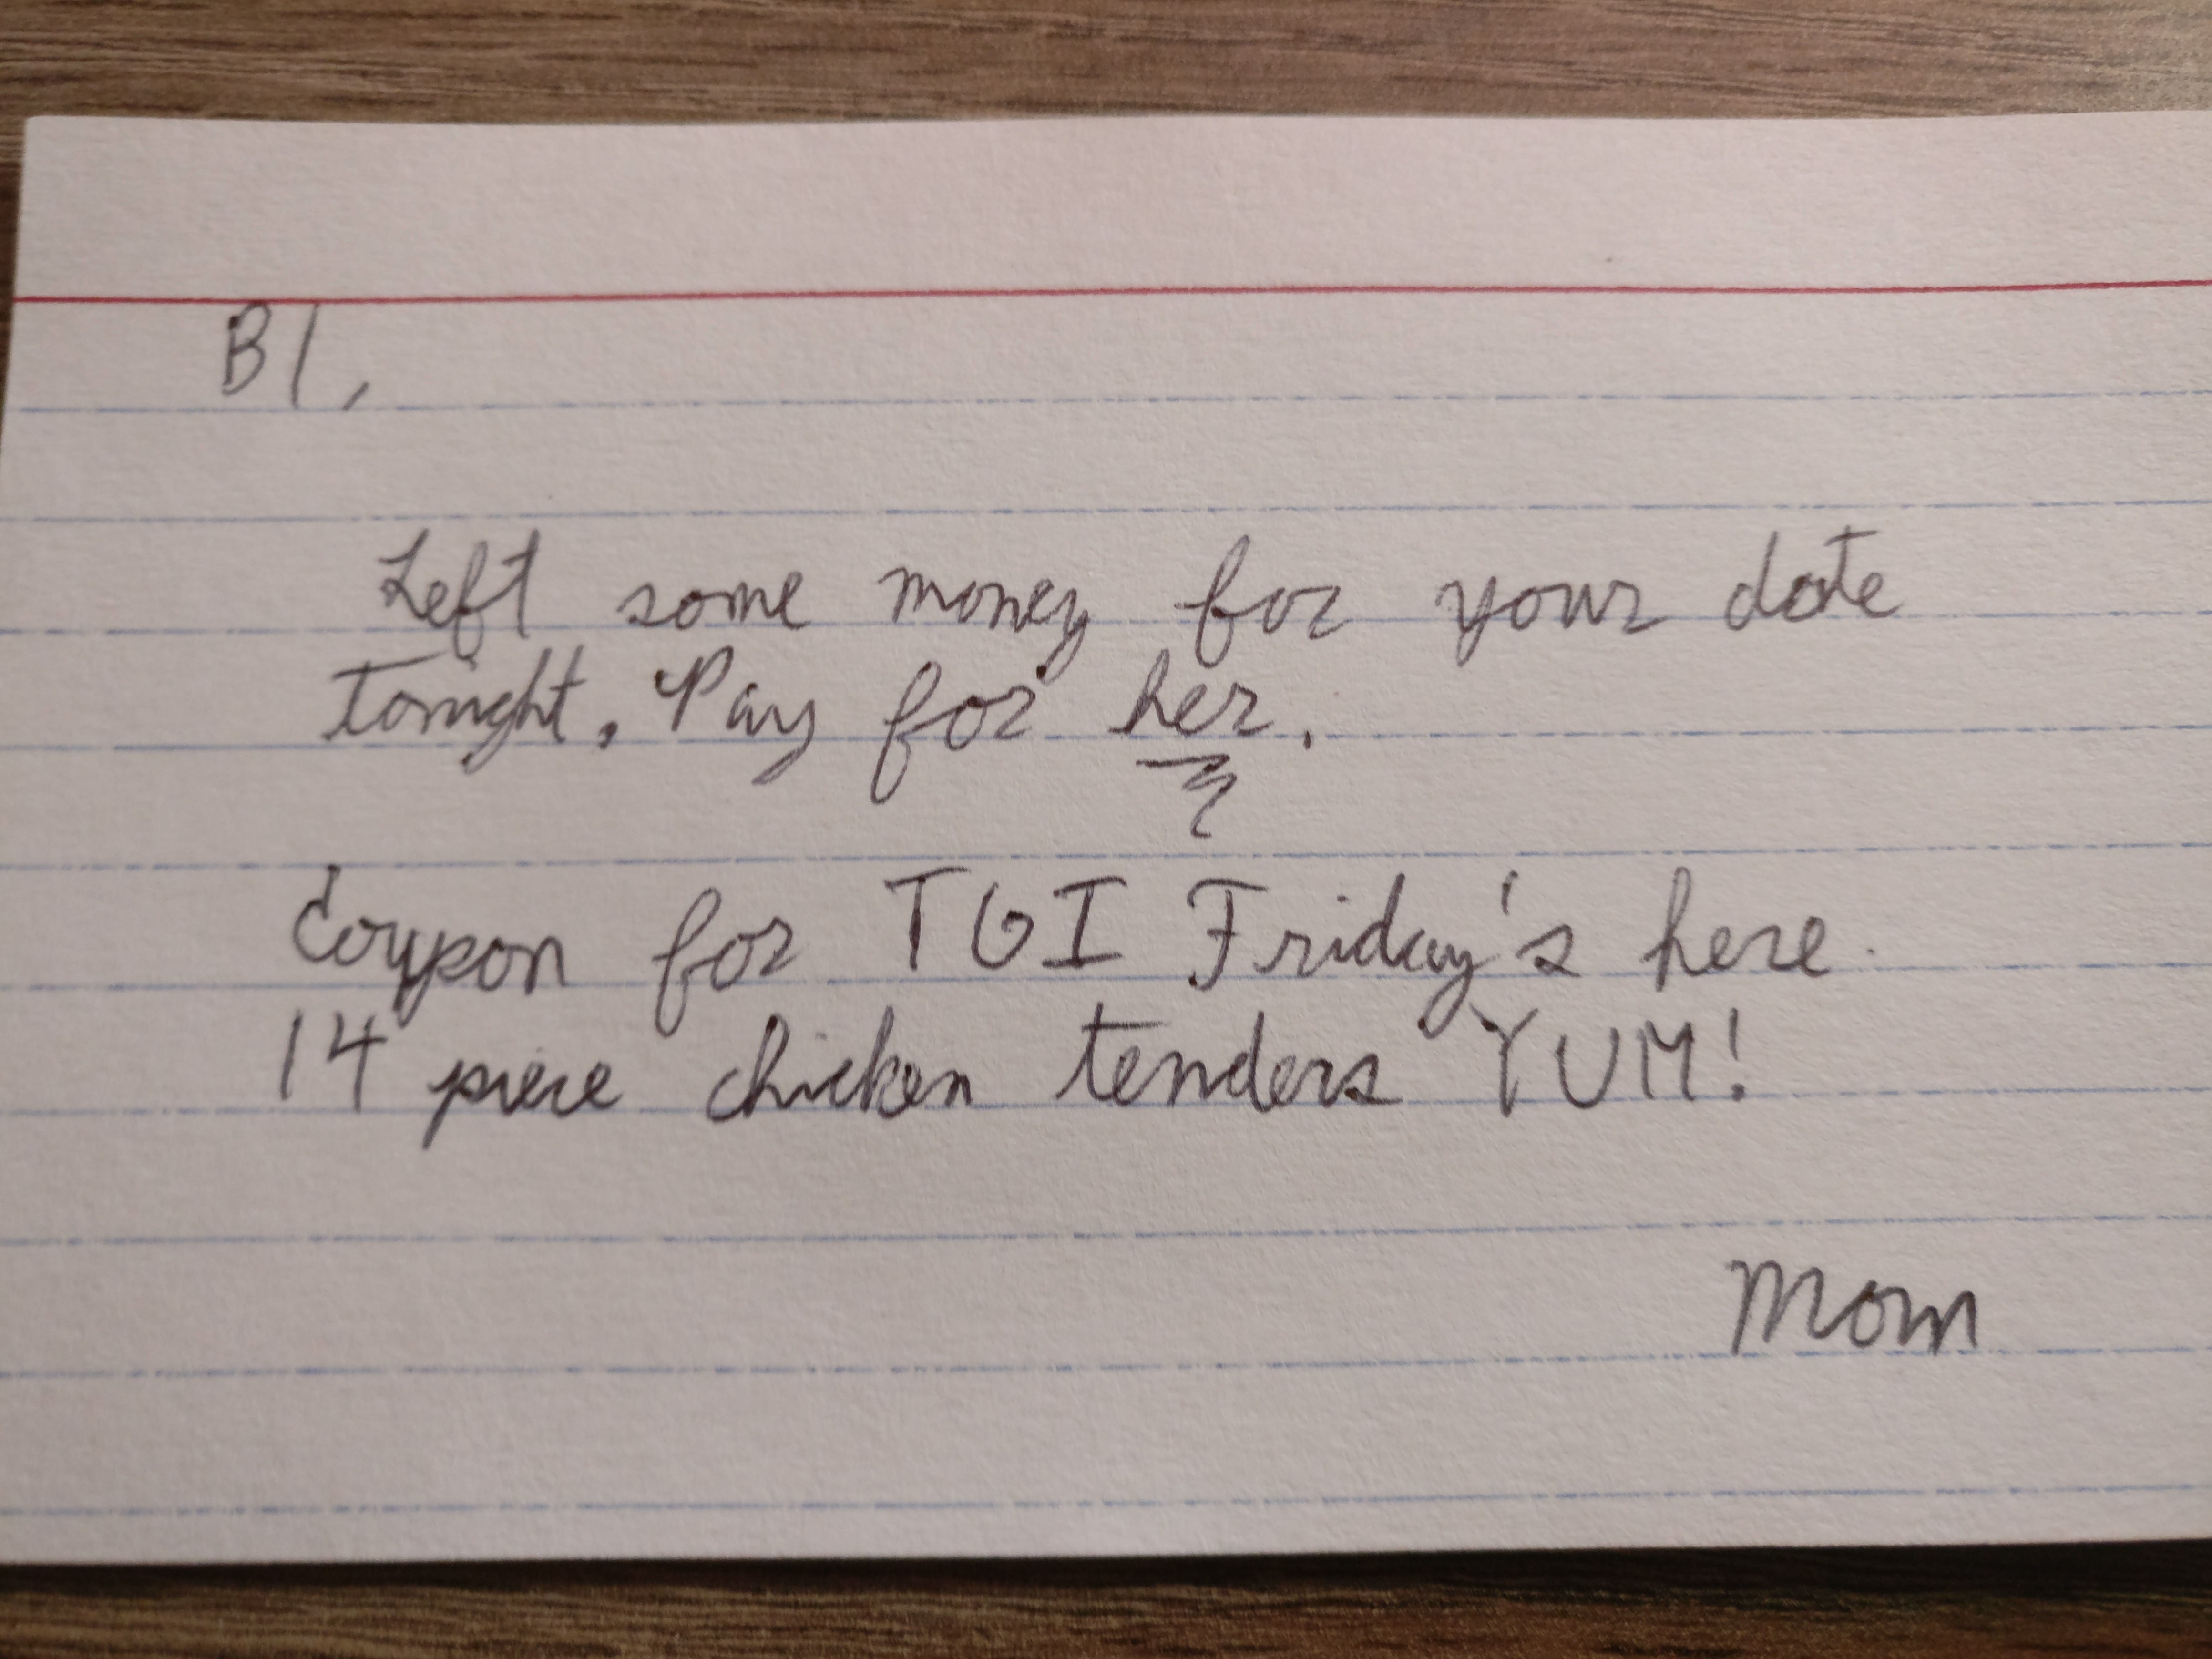 B1,
Left some money for your date
tonight. Pay for her.
Coupon for TGI Friday's here.
14 piece chicken tenders YUM!
Mom